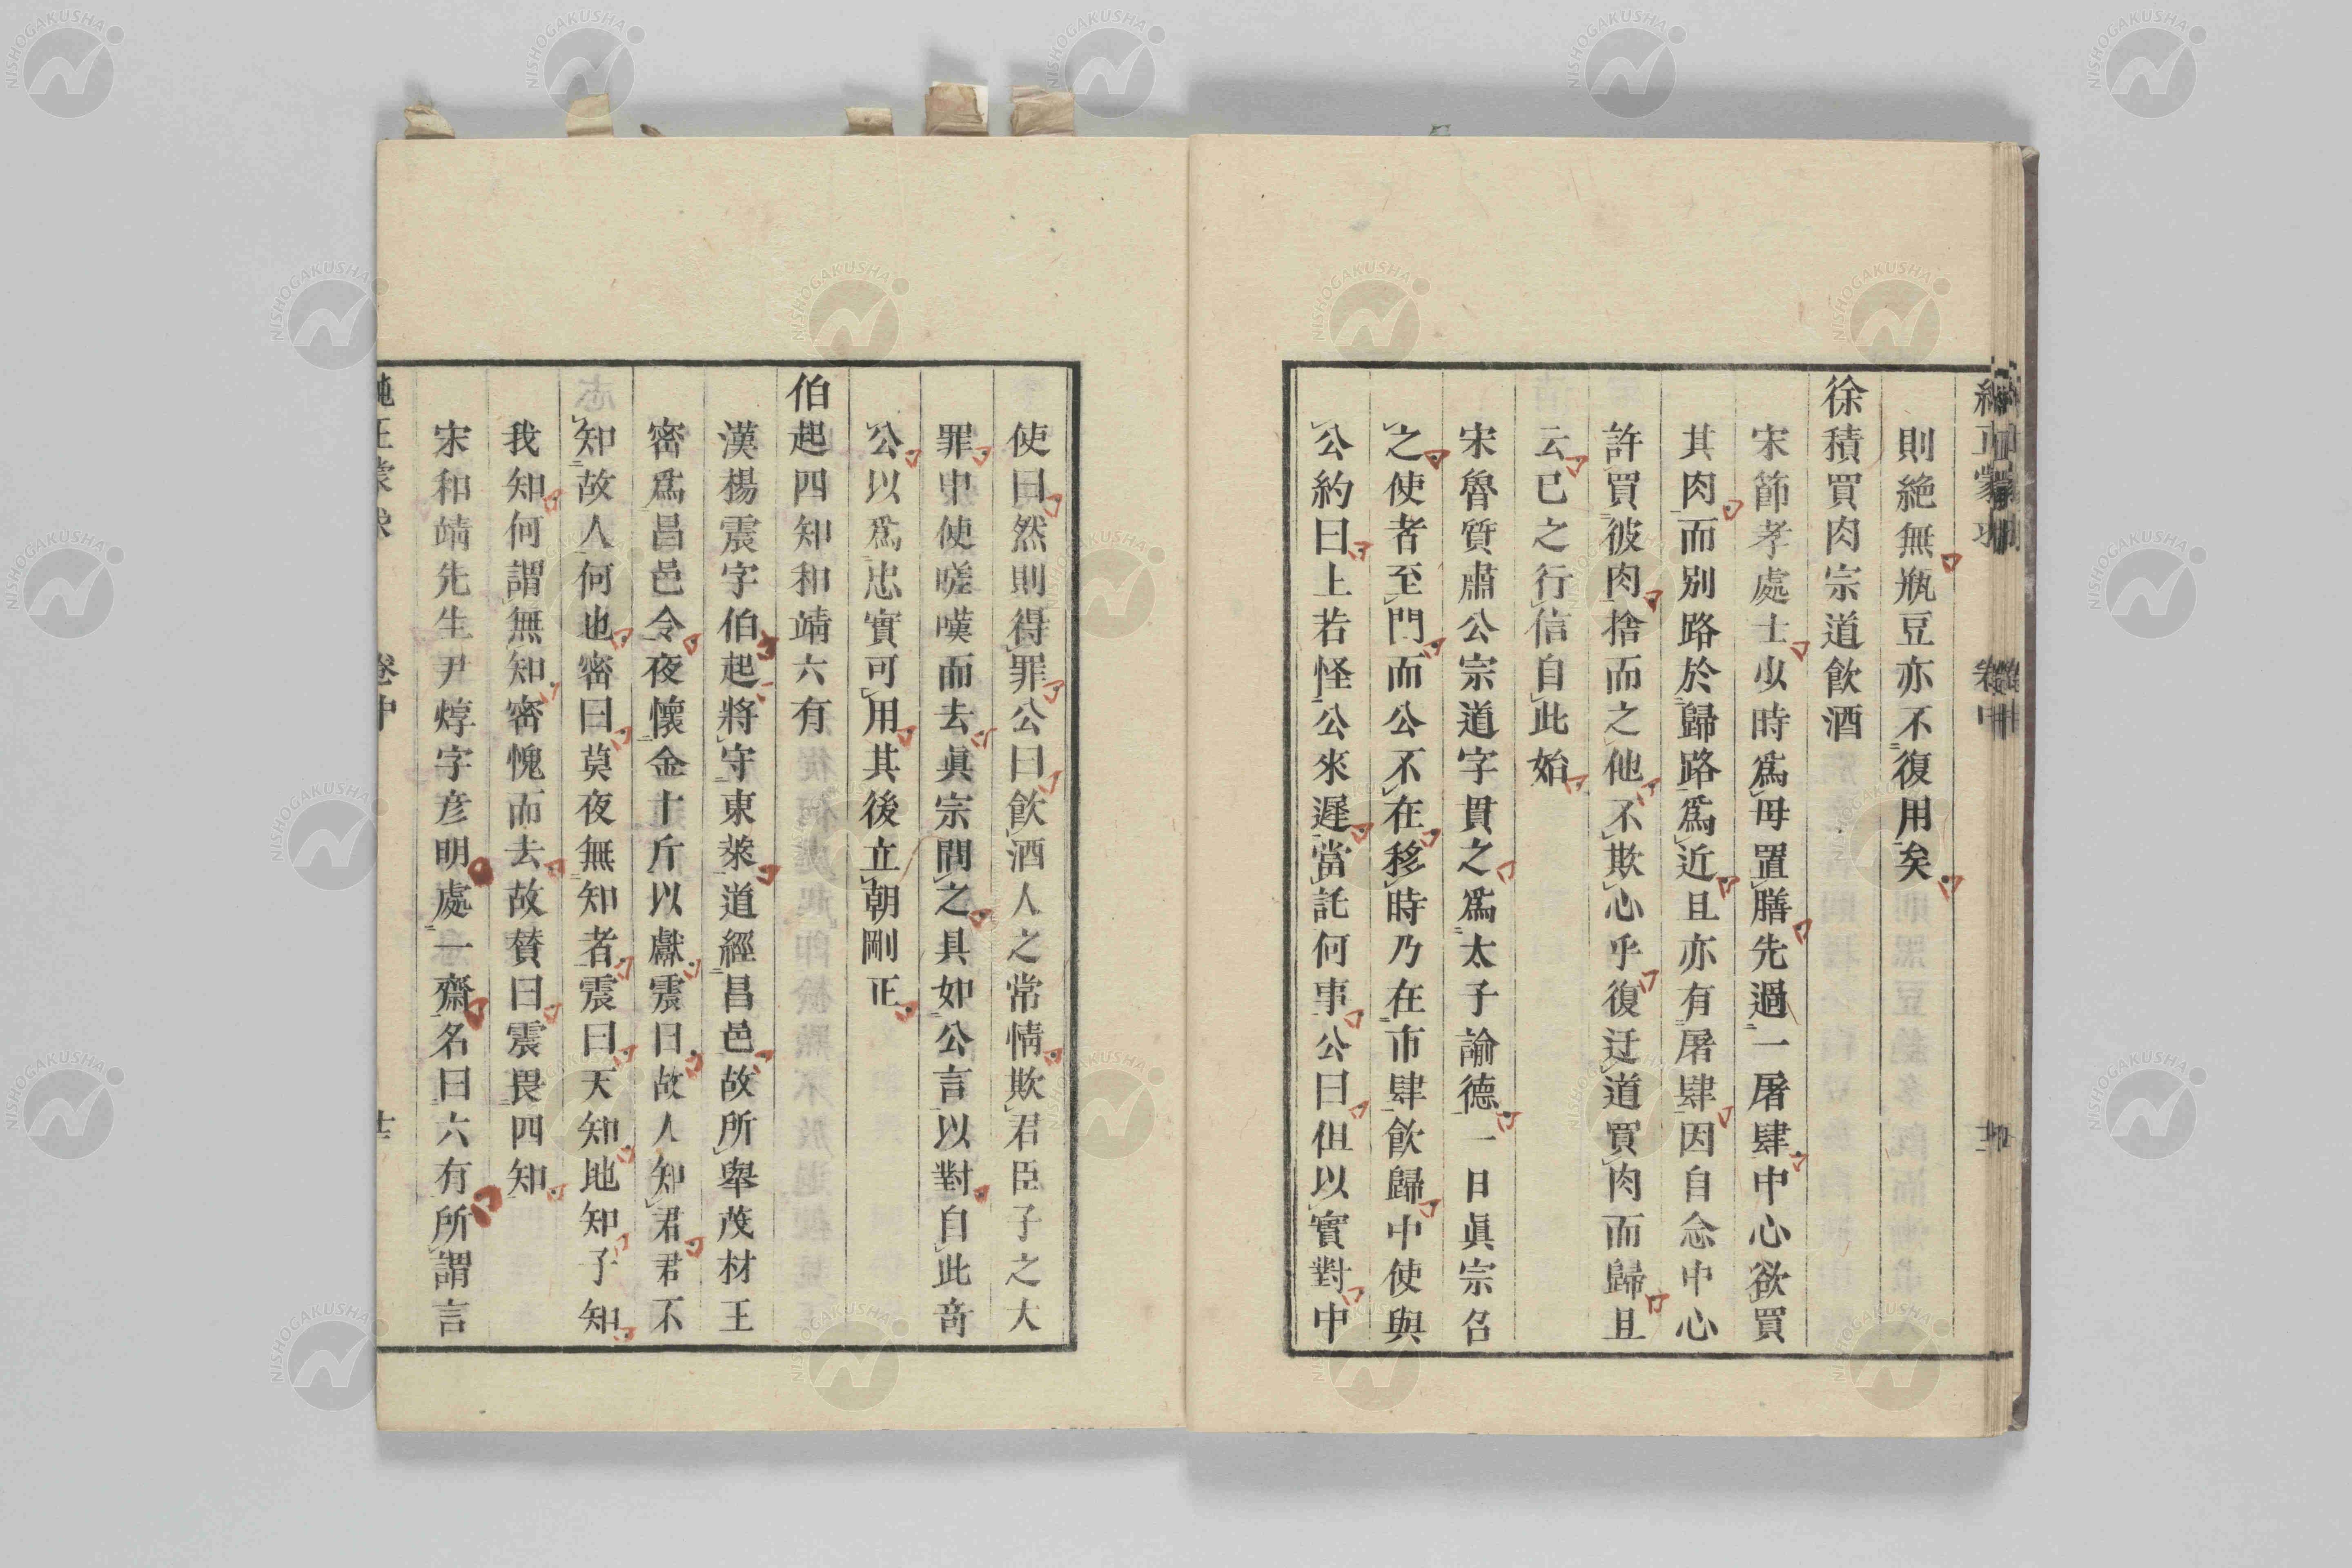 則絶無瓶豆亦不復用矣
徐積買肉宗道飲酒
宋節孝處士少時爲母置膳先過一屠肆中心欲買
其肉而別路於歸路爲近且亦有屠肆因自念中心
許買彼肉捨而之他不欺心乎復迂道買肉而歸且
云己之行信自此始
宋魯質肅公宗道字貫之爲太子諭德一日眞宗召
之使者至門而公不在移時乃在市肆飲歸中使與
公約曰上若怪公來遲當託何事公曰但以實對中
使曰然則得罪公曰飲酒人之常情欺君臣子之大
罪中使嗟嘆而去眞宗問之具如公言以對自此奇
公以爲忠實可用其後立朝剛正
伯起四知和靖六有
漢楊震字伯起將守東萊道經昌邑故所舉茂材王
密爲昌邑令夜懷金十斤以獻震曰故人知君君不
知故人何也密曰莫夜無知者震曰天知地知子知
我知何謂無知密愧而去故賛曰震畏四知
宋和靖先生尹焞字彦明處一齋名曰六有所謂言
純正蒙求 卷中 十
NISHOGAKUSHA